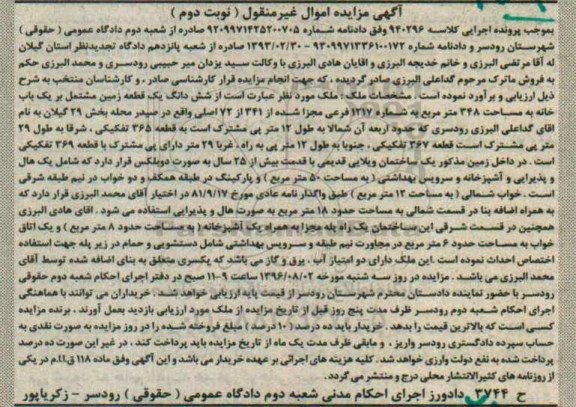 آگهی مزایده اموال غیرمنقول ( نوبت دوم )
بموجب پرونده اجرایی کلاسه ۹۴۰۲۹۶ وفق دادنامه شماره ۹۲۰۹۹۷۱۴۲۵۲۰۰۷۰۵ صادره از شعبه دوم دادگاه عمومی ( حقوقی )
شهرستان رودسر و دادنامه شماره ۹۳۰۹۹۷۱۳۳۶۱۰۰۱۷۲ - ۱۳۹۳/۰۲/۳۰ صادره از شعبه پانزدهم دادگاه تجدیدنظر استان گیلان
له آقا مرتضی البرزی و خانم خدیجه البرزی و اقایان هادی البرزی با وکالت سید یزدان میر حبیبی رودسری و محمد البرزی حکم
به فروش ماترک مرحوم گداعلی البرزی صادر گردیده ، که جهت انجام مزایده قرار کارشناسی صادر ، و کارشناسان منتخب به شرح
ذیل ارزیابی و برآورد نموده است . مشخصات ملک : ملک مورد نظر عبارت است از شش دانگ یک قطعه زمین مشتمل بر یک باب
خانه به مساحت ۳۴۸ متر مربع به شماره ۱۲۱۷ فرعی مجزا شده از ۳۴۱ از ۷۲ اصلی واقع در صیدر محله بخش ۲۹ گیلان به نام
اقای گداعلی البرزی رودسری که حدود اربعه آن شمالا به طول ۱۲ متر پی مشترک است به قطعه ۳۶۵ تفکیکی ، شرقا به طول ۲۹
متر پی مشترک است قطعه ۳۶۷ تفکیکی ، جنوبا به طول ۱۲ متر پی به راه . غربا ۲۹ متر دارای پی مشترک با قطعه ۳۶۹ تفکیکی
است . در داخل زمین مذکور یک ساختمان ویلایی قدیمی با قدمت بیش از ۲۵ سال به صورت دوبلکس قرار دارد که شامل یک هال
و پذیرایی و آشپزخانه و سرویس بهداشتی ( به مساحت ۵۰ متر مربع ) و پارکینگ در طبقه همکف و دو خواب در نیم طبقه شرقی
است . خواب شمالی ( به مساحت ۱۲ متر مربع ) طبق واگذار نامه عادی مورخ ۸۱/۹/۱۷ در اختیار آقای محمد البرزی قرار دارد که
به همراه اضافه بنا در قسمت شمالی به مساحت حدود ۱۸ متر مربع به صورت هال و پذیرایی استفاده می شود . اقای هادی البرزی
همچنین در قسمت شرقی این ساختمان یک راه پله مجزا به همراه یک آشپزخانه ( به مساحت حدود ۸ متر مربع ) و یک اتاق
خواب به مساحت حدود ۶ متر مربع در مجاورت نیم طبقه و سرویس بهداشتی شامل دستشویی و حمام در زیر پله جهت استفاده
اختصاص احداث نموده است . این ملک دارای دو امتیاز آب . برق و گاز می باشد که یکسری متعلق به بنای اضافه شده توسط آقای
محمد البرزی می باشد . مزایده در روز سه شنبه مورخه ۱۳۹۶/۰۸/۰۲ ساعت ۹-۱۱ صبح در دفتر اجرای احکام شعبه دوم حقوقی
رودسر با حضور نماینده دادستان محترم شهرستان رودسر از قیمت پایه ارزیابی خواهد شد . خریداران می توانند با هماهنگی
اجرای احکام شعبه دوم رودسر ظرف مدت پنج روز قبل از تاریخ مزایده از ملک مورد ارزیابی بازدید بعمل آورند . برنده مزایده
کسی است که بالاترین قیمت را بدهد . خریدار باید ده درصد ( ۱۰ درصد ) مبلغ فروخته شده را در روز مزایده به صورت نقدی به
حساب سپرده دادگستری رودسر واریز ، و مابقی ظرف مدت یک ماه از تاریخ مزایده باید پرداخت کند ، در غیر این صورت ده درصد
پرداخت شده به نفع دولت وارزی خواهد شد . کلیه هزینه های اجرائی بر عهده خریدار می باشد و این آگهی وفق ماده ۱۱۸ ق.ا.ا.م در یکی
از روزنامه های کثیرالانتشار محلی درج و منتشر می گردد.
ح ۳۷۴۴ دادورز اجرای احکام مدنی شعبه دوم دادگاه عمومی ( حقوقی ) رودسر - زکریاپور